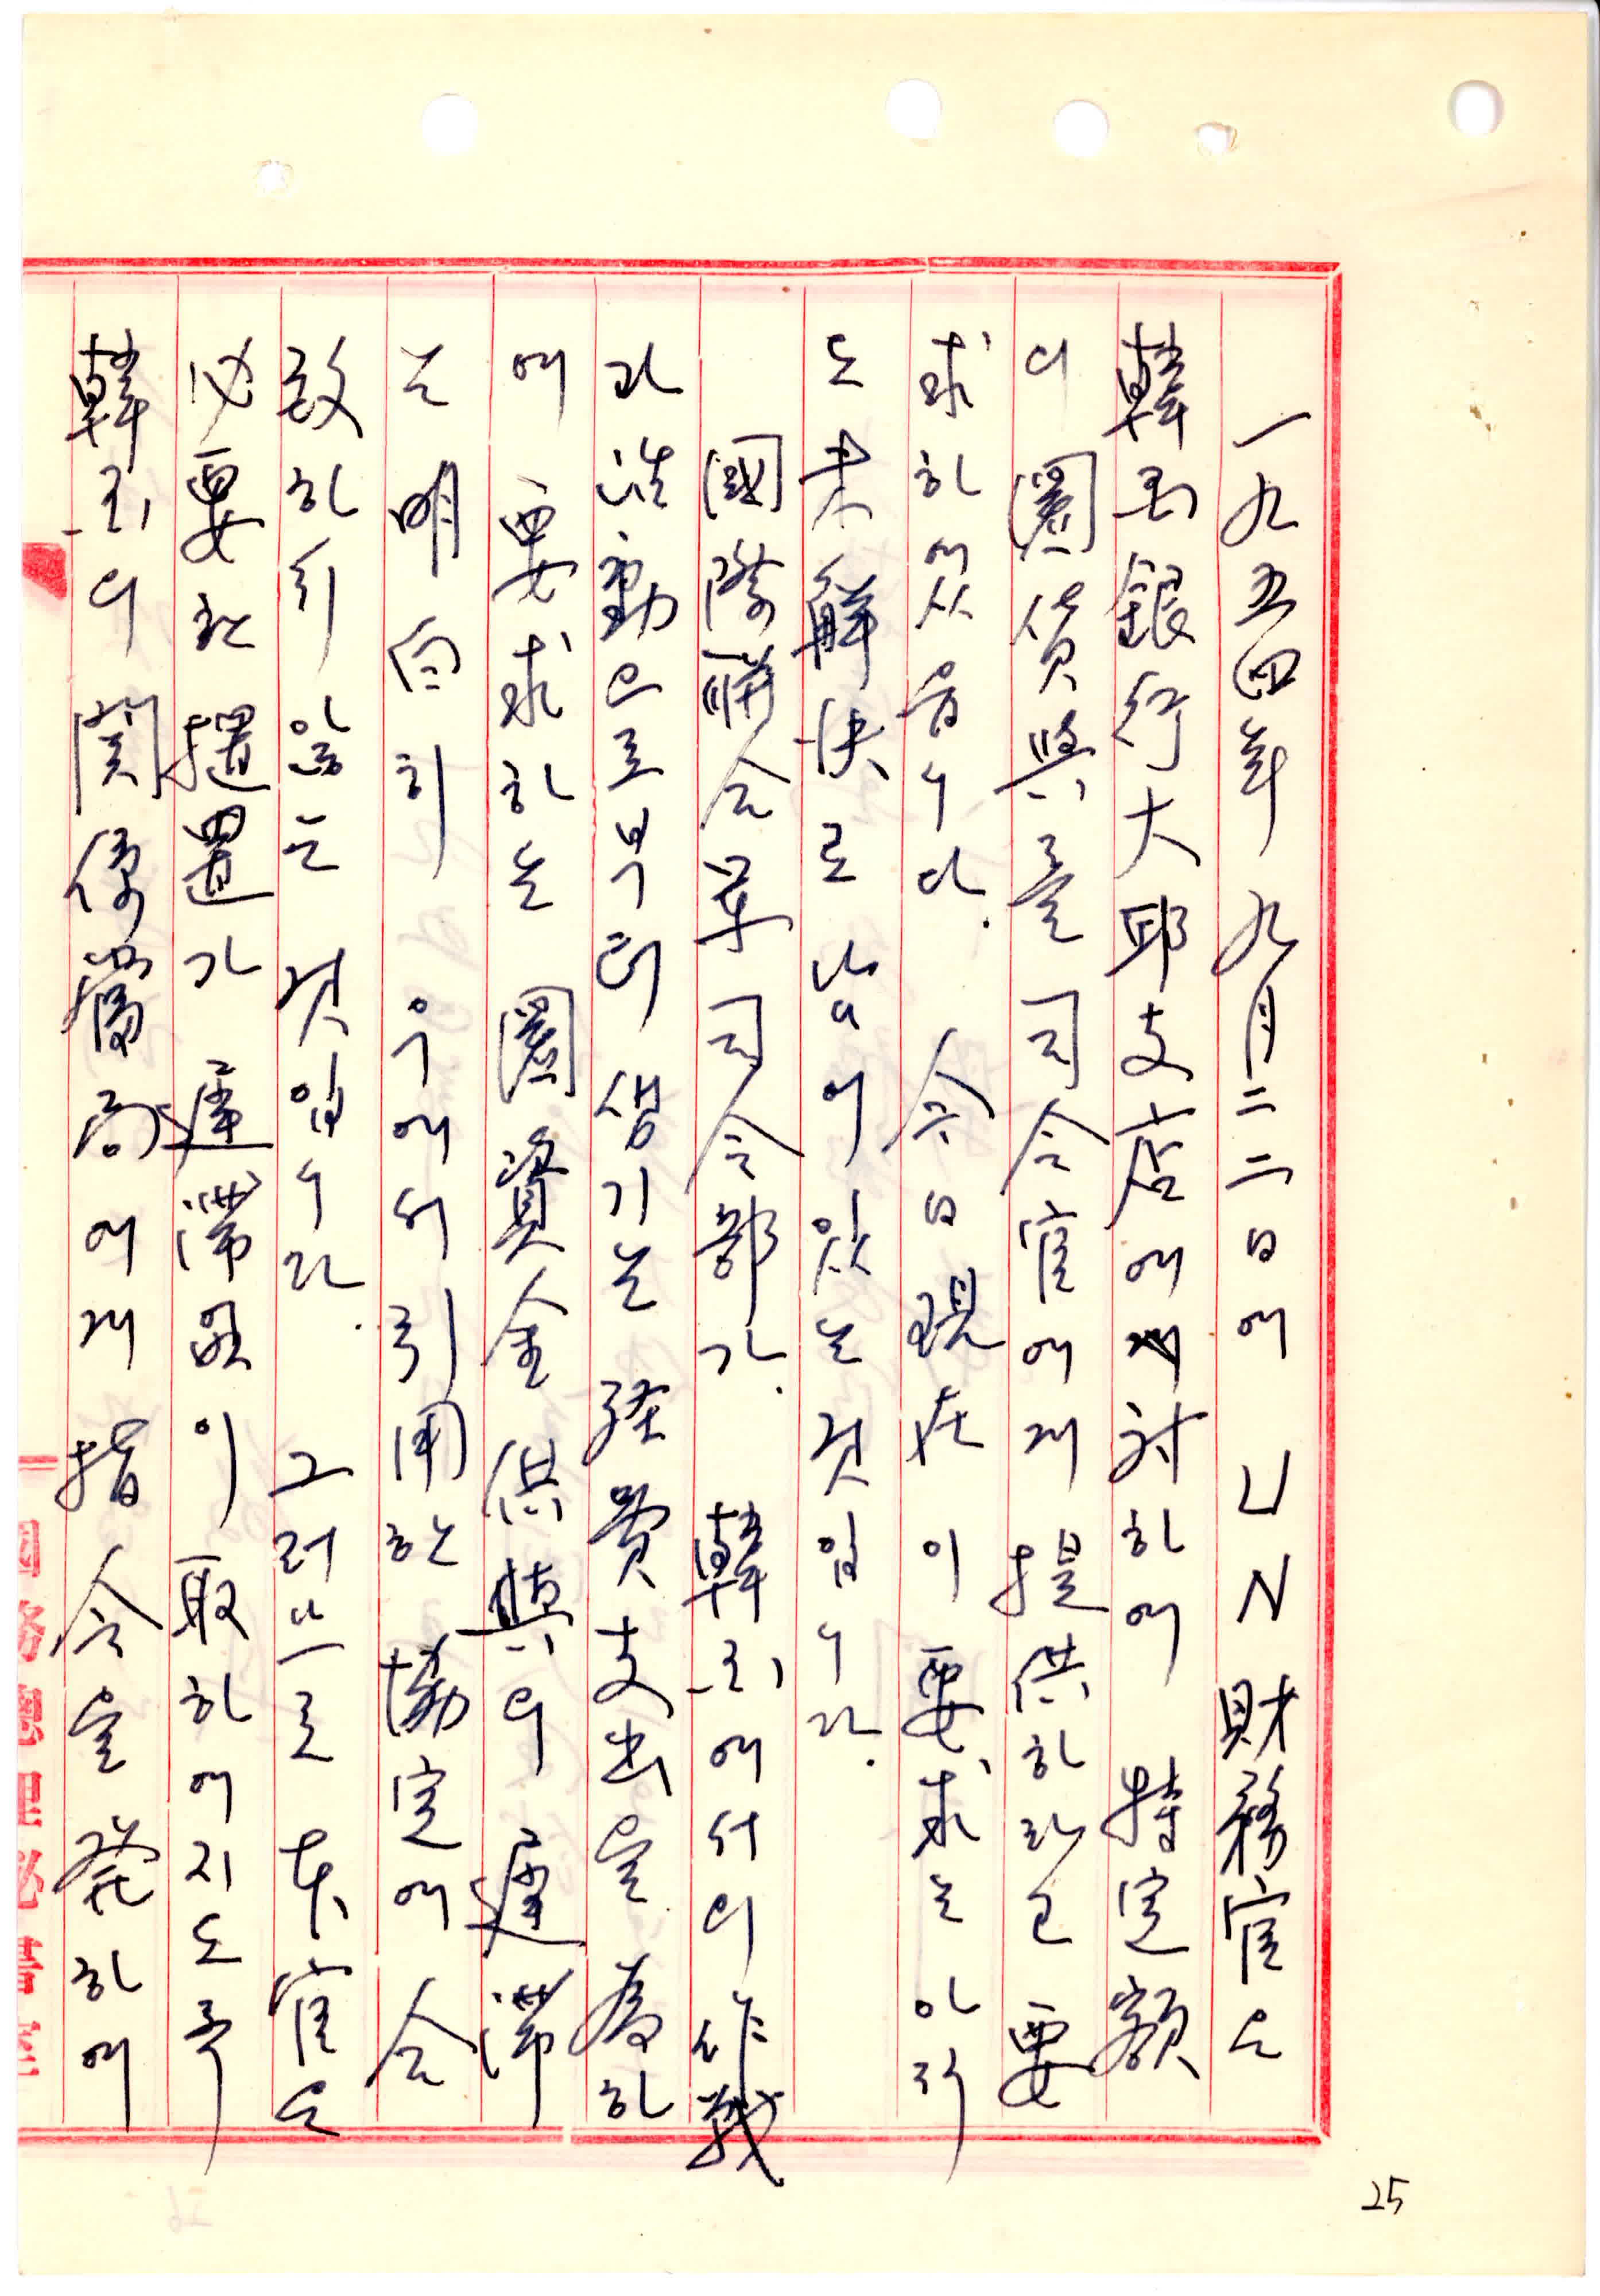 一九五四年 九月二二日에 UN 財務官은
韓国銀行大邱支店에 対하여 特定額
의 圜貨与를 司令官에게 提供하라고 要
求하였읍니다. 今日現在 이 要求는 아직
도 未解決로 남어 있는 것입니다.
國際聯合軍司令部가 韓国에서의 作戦
과 活動으로부터 생기는 経費支出을 為하
에 要求하는 圜資金供與의 遅滞
는 明白히 우에의 引用한 協定에 合
致하지 않는 것입니다. 그러므로 本官은
必要한 措置가 遅滞없이 取하여지도록
韓国의 関係當局에게 指令을 発하여
25